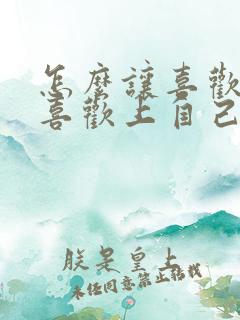 怎麼讓喜歡
喜歡上自己
朕是皇上
未經同意禁止轉載